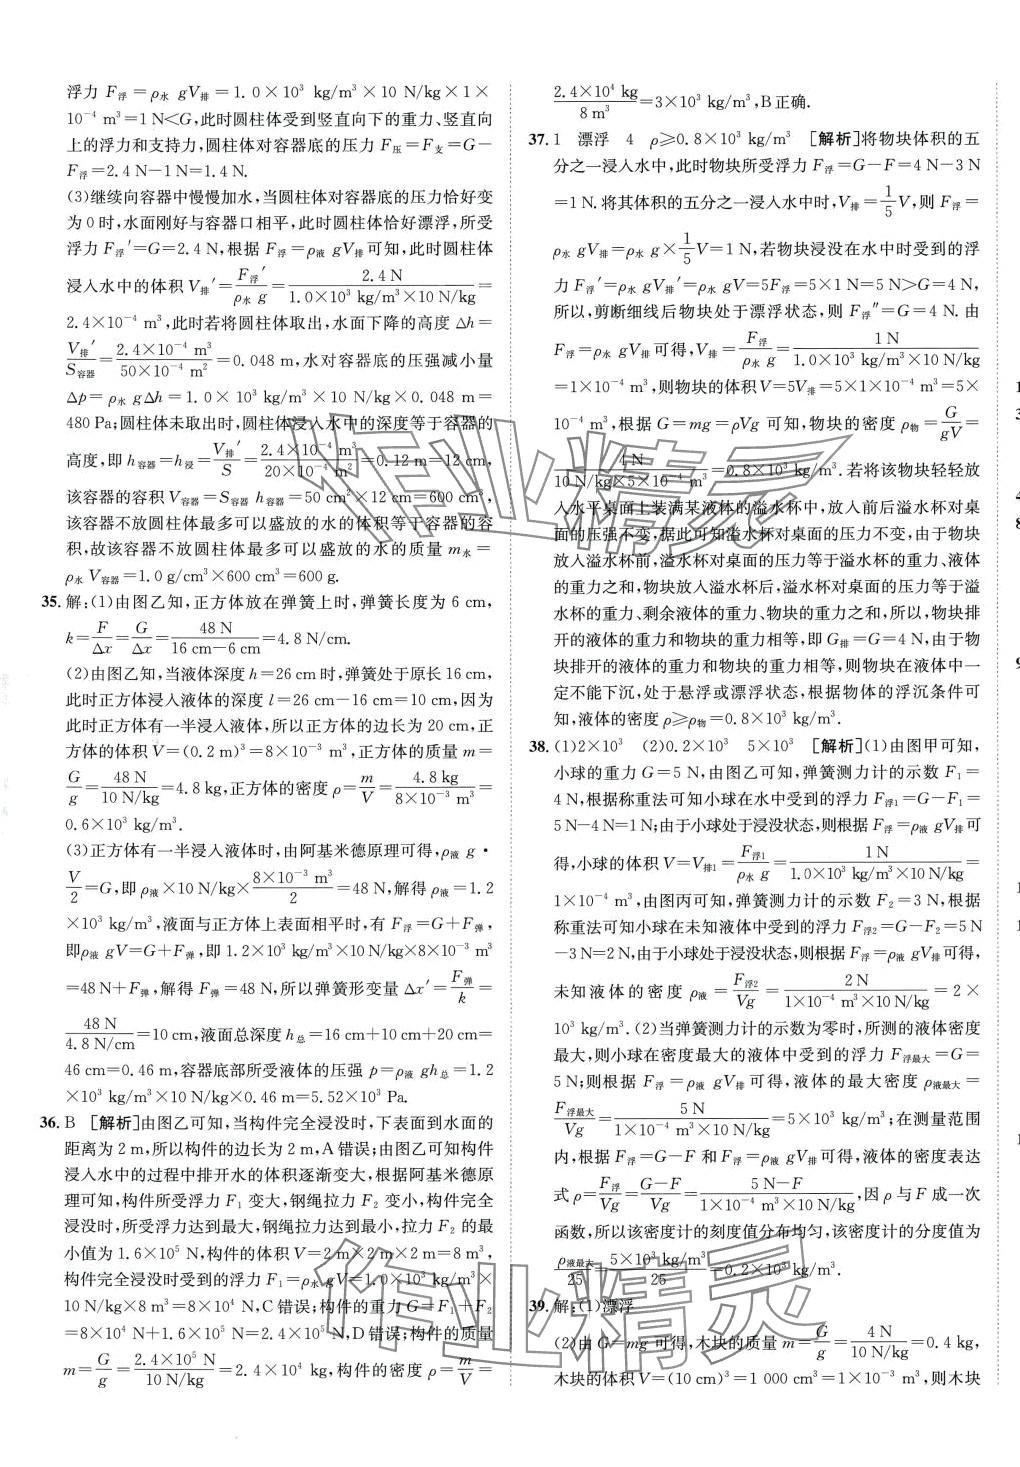 浮力 F浮=ρ水 gV排=1.0×10³ kg/m³×10 N/kg×1×
10⁻⁴ m³=1 N<G,此时圆柱体受到竖直向下的重力、竖直向
上的浮力和支持力,圆柱体对容器底的压力 F压=F支=G-
F浮=2.4 N-1 N=1.4 N.
(3)继续向容器中慢慢加水,当圆柱体对容器底的压力恰好变
为 0 时,水面刚好与容器口相平,此时圆柱体恰好漂浮,所受
浮力 F浮′=G=2.4 N,根据 F浮=ρ液 gV排可知,此时圆柱体
浸入水中的体积 V排′=F浮′/ρ水 g=2.4 N/1.0×10³ kg/m³×10 N/kg=
2.4×10⁻⁴ m³,此时若将圆柱体取出,水面下降的高度 Δh=
V排′/S容器=2.4×10⁻⁴ m³/50×10⁻⁴ m²=0.048 m,水对容器底的压强减小量
Δp=ρ水 gΔh=1.0×10³ kg/m³×10 N/kg×0.048 m=
480 Pa;圆柱体未取出时,圆柱体浸入水中的深度等于容器的
高度,即 h容器=h浸=V排′/S=2.4×10⁻⁴ m³/20×10⁻⁴ m²=0.12 m=12 cm,
该容器的容积 V容器=S容器 h容器=50 cm²×12 cm=600 cm³,
该容器不放圆柱体最多可以盛放的水的体积等于容器的容
积,故该容器不放圆柱体最多可以盛放的水的质量 m水=
ρ水 V容器=1.0 g/cm³×600 cm³=600 g.
35. 解:(1)由图乙知,正方体放在弹簧上时,弹簧长度为 6 cm,
k=F/Δx=G/Δx=48 N/16 cm-6 cm=4.8 N/cm.
(2)由图乙知,当液体深度 h=26 cm 时,弹簧处于原长 16 cm,
此时正方体浸入液体的深度 l=26 cm-16 cm=10 cm,因为
此时正方体有一半浸入液体,所以正方体的边长为 20 cm,正
方体的体积 V=(0.2 m)³=8×10⁻³ m³,正方体的质量 m=
G/g=48 N/10 N/kg=4.8 kg,正方体的密度 ρ=m/V=4.8 kg/8×10⁻³ m³=
0.6×10³ kg/m³.
(3)正方体有一半浸入液体时,由阿基米德原理可得,ρ液 g·
V/2=G,即 ρ液×10 N/kg×8×10⁻³ m³/2=48 N,解得 ρ液=1.2
×10³ kg/m³,液面与正方体上表面相平时,有 F浮=G+F弹,
即ρ液 gV=G+F弹,即 1.2×10³ kg/m³×10 N/kg×8×10⁻³ m³
=48 N+F弹,解得 F弹=48 N,所以弹簧形变量 Δx′=F弹/k=
48 N/4.8 N/cm=10 cm,液面总深度 h总=16 cm+10 cm+20 cm=
46 cm=0.46 m,容器底部所受液体的压强 p=ρ液 gh总=1.2
×10³ kg/m³×10 N/kg×0.46 m=5.52×10³ Pa.
36. B [解析]由图乙可知,当构件完全浸没时,下表面到水面的
距离为 2 m,所以构件的边长为 2 m,A 错误;由图乙可知构件
浸入水中的过程中排开水的体积逐渐变大,根据阿基米德原
理可知,构件所受浮力 F₁ 变大,钢绳拉力 F₂ 变小,构件完全
浸没时,所受浮力达到最大,钢绳拉力达到最小,拉力 F₂ 的最
小值为 1.6×10⁵ N,构件的体积 V=2 m×2 m×2 m=8 m³,
构件完全浸没时受到的浮力 F₁=ρ水 gV=1.0×10³ kg/m³×
10 N/kg×8 m³=8×10⁴ N,C 错误;构件的重力 G=F₁+F₂
=8×10⁴ N+1.6×10⁵ N=2.4×10⁵ N,D 错误;构件的质量
m=G/g=2.4×10⁵ N/10 N/kg=2.4×10⁴ kg,构件的密度 ρ=m/V=
2.4×10⁴ kg/8 m³=3×10³ kg/m³,B 正确.
37. 1 漂浮 4 ρ≥0.8×10³ kg/m³ [解析]将物块体积的五
分之一浸入水中,此时物块所受浮力 F浮=G-F=4 N-3 N
=1 N.将其体积的五分之一浸入水中时,V排=1/5V,则 F浮=
ρ水 gV排=ρ水 g×1/5V=1 N,若物块浸没在水中时受到的浮
力 F浮′=ρ水 gV排′=ρ水 gV=5F浮=5×1 N=5 N>G=4 N,
所以,剪断细线后物块处于漂浮状态,则 F浮″=G=4 N.由
F浮=ρ水 gV排可得,V排=F浮/ρ水 g=1 N/1.0×10³ kg/m³×10 N/kg
=1×10⁻⁴ m³,则物块的体积 V=5V排=5×1×10⁻⁴ m³=5×
10⁻⁴ m³,根据 G=mg=ρVg 可知,物块的密度 ρ物=G/gV=
4 N/10 N/kg×5×10⁻⁴ m³=0.8×10³ kg/m³.若将该物块轻轻放
入水平桌面上装满某液体的溢水杯中,放入前后溢水杯对桌
面的压强不变,据此可知溢水杯对桌面的压力不变,由于物块
放入溢水杯前,溢水杯对桌面的压力等于溢水杯的重力、液体
的重力之和,物块放入溢水杯后,溢水杯对桌面的压力等于溢
水杯的重力、剩余液体的重力、物块的重力之和,所以,物块排
开的液体的重力和物块的重力相等,即 G排=G=4 N,由于物
块排开的液体的重力和物块的重力相等,物块在液体中一
定不能下沉,处于悬浮或漂浮状态,根据物体的浮沉条件可
知,液体的密度 ρ≥ρ物=0.8×10³ kg/m³.
38. (1)2×10³ (2)0.2×10³ 5×10³ [解析](1)由图甲可知,
小球的重力 G=5 N,由图乙可知,弹簧测力计的示数 F₁=
4 N,根据称重法可知小球在水中受到的浮力 F浮1=G-F₁=
5 N-4 N=1 N;由于小球处于浸没状态,则根据 F浮=ρ液 gV排可
得,小球的体积 V=V排1=F浮1/ρ水 g=1 N/1.0×10³ kg/m³×10 N/kg=
1×10⁻⁴ m³,由图丙可知,弹簧测力计的示数 F₂=3 N,根据
称重法可知小球在未知液体中受到的浮力 F浮2=G-F₂=5 N
-3 N=2 N,由于小球处于浸没状态,则根据 F浮=ρ液 gV排可得,
未知液体的密度 ρ液=F浮2/Vg=2 N/1×10⁻⁴ m³×10 N/kg=2×
10³ kg/m³.(2)当弹簧测力计的示数为零时,所测的液体密度
最大,则小球在密度最大的液体中受到的浮力 F浮最大=G=
5 N;则根据 F浮=ρ液 gV排可得,液体的最大密度 ρ液最大=
F浮最大/Vg=5 N/1×10⁻⁴ m³×10 N/kg=5×10³ kg/m³;在测量范围
内,根据 F浮=G-F 和 F浮=ρ液 gV排可得,液体的密度表达
式 ρ=F浮/Vg=G-F/Vg=5 N-F/1×10⁻⁴ m³×10 N/kg,因 ρ 与 F 成一次
函数,所以该密度计的刻度值分布均匀,该密度计的分度值为
ρ液最大/25=5×10³ kg/m³/25=0.2×10³ kg/m³.
39. 解:(1)漂浮
(2)由 G=mg 可得,木块的质量 m=G/g=4 N/10 N/kg=0.4 kg,
木块的体积 V=(10 cm)³=1 000 cm³=1×10⁻³ m³,则木块
作业精灵
作业精灵